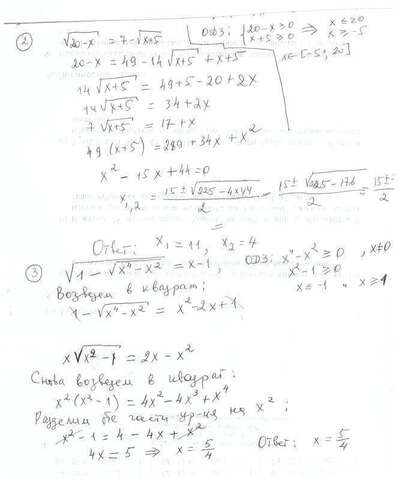 ② √20-x = 7-√x+5 ОДЗ: {20-x ≥ 0 x+5 ≥ 0 ⇒ x ≤ 20 x ≥ -5
20-x = 49-14√x+5 + x+5 x∈[-5; 20]
14√x+5 = 49+5-20+2x
14√x+5 = 34+2x
7√x+5 = 17+x
49(x+5) = 289+34x+x²
x²-15x+44=0
x₁,₂ = 15±√225-4×44 / 2 = 15±√225-176 / 2 = 15± / 2
Ответ: x₁=11, x₂=4
③ √1-√x⁴-x² = x-1, ОДЗ: x⁴-x² ≥ 0, x≠0
x²-1 ≥ 0
Возведем в квадрат: x ≤ -1 x ≥ 1
1-√x⁴-x² = x²-2x+1
x√x²-1 = 2x-x²
Снова возведем в квадрат:
x²(x²-1) = 4x²-4x³+x⁴
Разделим обе части ур-ия на x²;
x²-1 = 4-4x+x²
4x=5 ⇒ x=5/4 Ответ: x=5/4